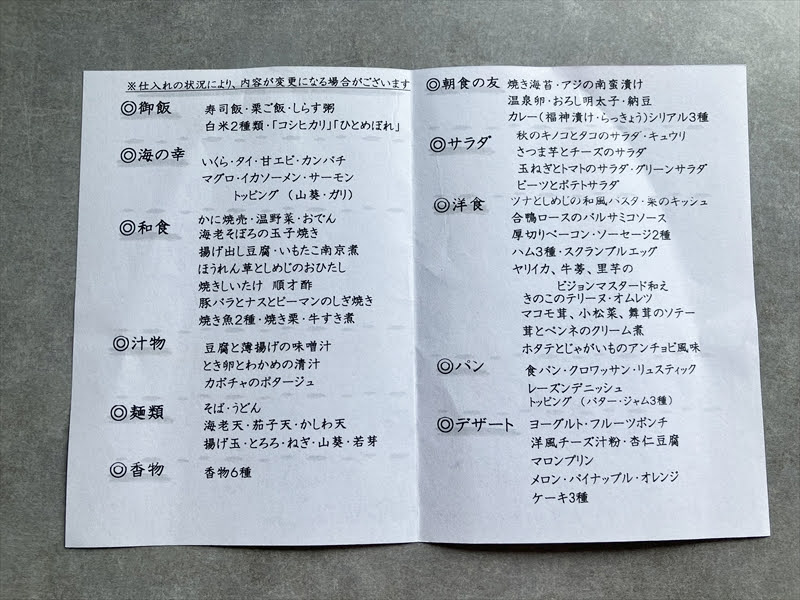 ※仕入れの状況により、内容が変更になる場合がございます
◎御飯 寿司飯・栗ご飯・しらす粥
白米2種類・「コシヒカリ」「ひとめぼれ」
◎海の幸 いくら・タイ・甘エビ・カンパチ
マグロ・イカソーメン・サーモン
トッピング (山葵・ガリ)
◎和食 かに焼売・温野菜・おでん
海老そぼろの玉子焼き
揚げ出し豆腐・いもたこ南京煮
ほうれん草としめじのおひたし
焼きしいたけ 順才酢
豚バラとナスとピーマンのしぎ焼き
焼き魚2種・焼き栗・牛すき煮
◎汁物 豆腐と薄揚げの味噌汁
とき卵とわかめの清汁
カボチャのポタージュ
◎麺類 そば・うどん
海老天・茄子天・かしわ天
揚げ玉・とろろ・ねぎ・山葵・若芽
◎香物 香物6種
◎朝食の友 焼き海苔・アジの南蛮漬け
温泉卵・おろし明太子・納豆
カレー(福神漬け・らっきょう)シリアル3種
◎サラダ 秋のキノコとタコのサラダ・キュウリ
さつま芋とチーズのサラダ
玉ねぎとトマトのサラダ・グリーンサラダ
ビーツとポテトサラダ
◎洋食 ツナとしめじの和風パスタ・栗のキッシュ
合鴨ロースのバルサミコソース
厚切りベーコン・ソーセージ2種
ハム3種・スクランブルエッグ
ヤリイカ、牛蒡、里芋の
ビジョンマスタード和え
きのこのテリーヌ・オムレツ
マコモ茸、小松菜、舞茸のソテー
茸とペンネのクリーム煮
ホタテとじゃがいものアンチョビ風味
◎パン 食パン・クロワッサン・リュスティック
レーズンデニッシュ
トッピング (バター・ジャム3種)
◎デザート ヨーグルト・フルーツポンチ
洋風チーズ汁粉・杏仁豆腐
マロンプリン
メロン・パイナップル・オレンジ
ケーキ3種